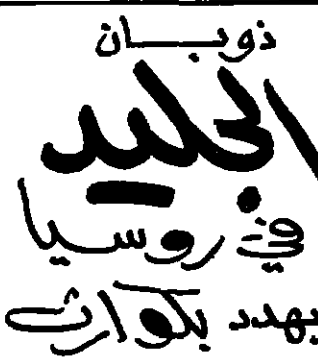 ذوبان
الجليد
في روسيا
يهدد بكوارث